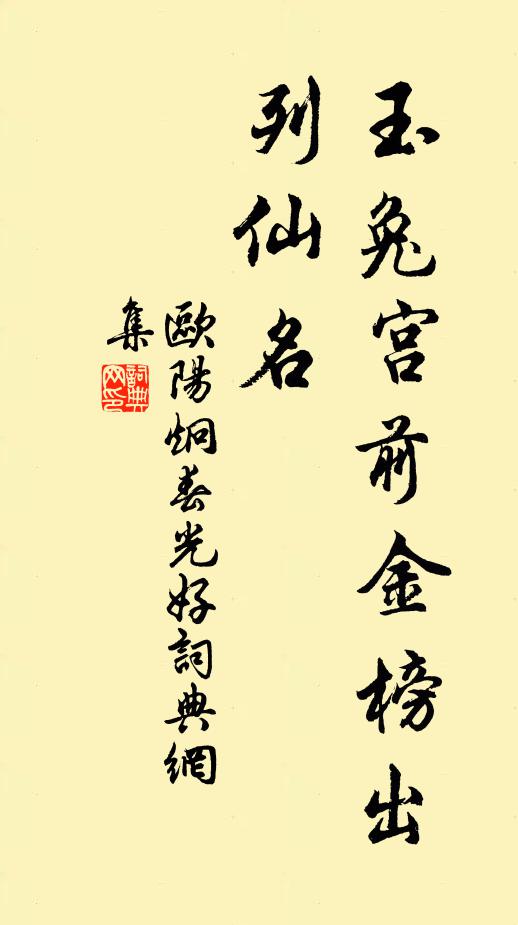 玉兔宮前金榜出
列仙名
歐陽炯春光好詞典網
集
詞典
网印